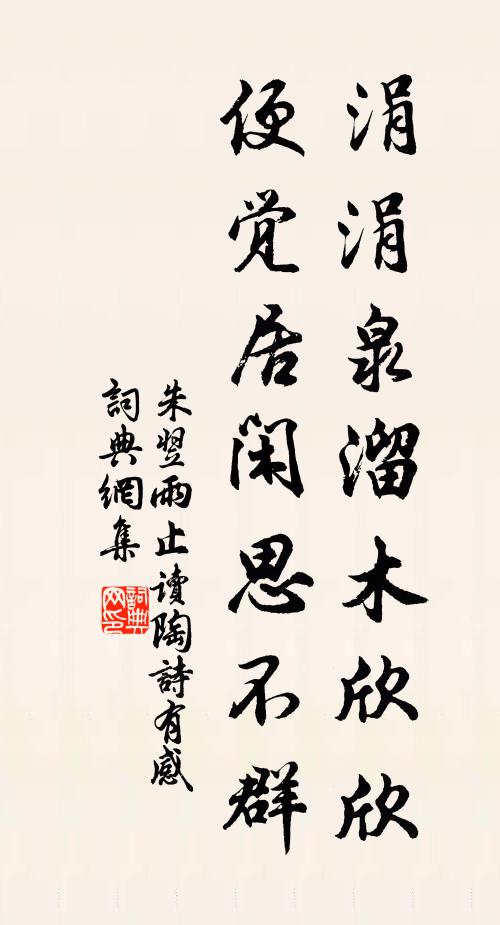 涓涓泉溜木欣欣
便觉居闲思不群
朱翌雨止读陶詩有感
詞典網集
詞典网印